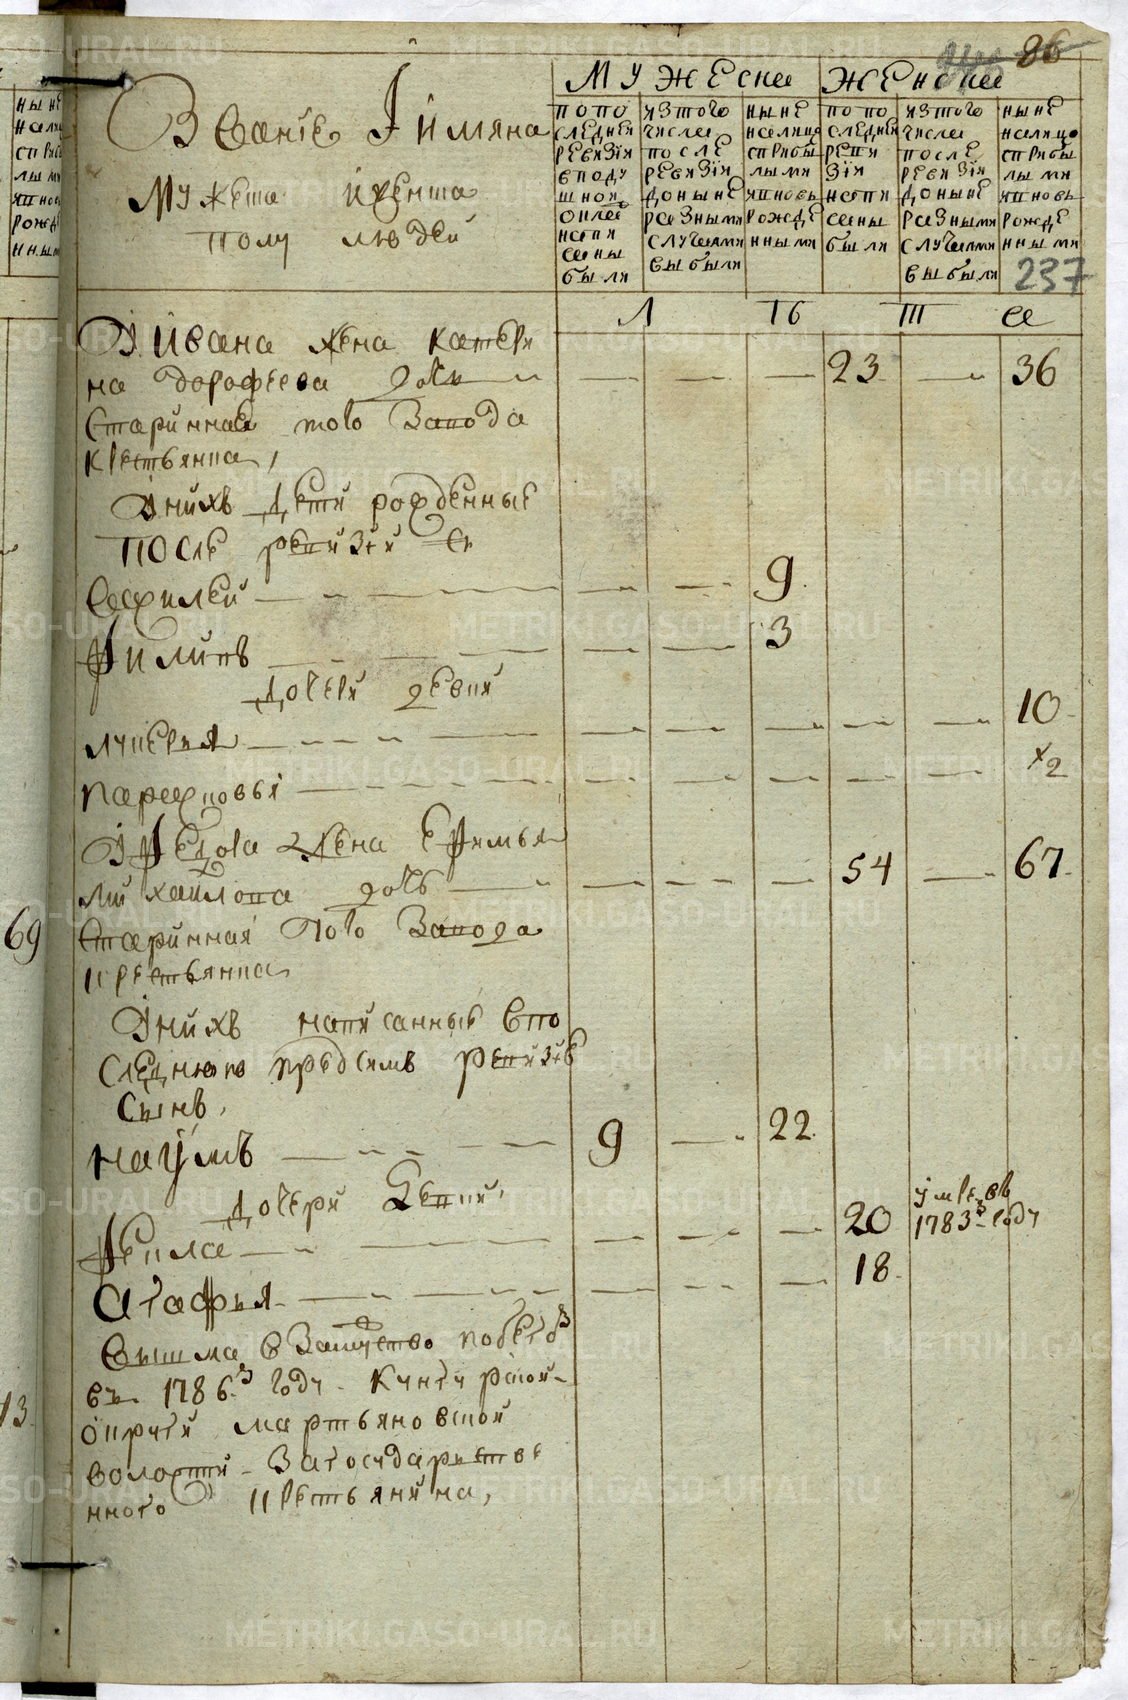 86
Званїе Їимяна
Мужеска їженска
полу людей
Мужеска
Женска
попо
следней
ревизїи
вподу
шной
оклад
написаны
были
изтого
числа
после
ревизїи
доныне
разными
случаями
выбыли
ныне
налицо
сприбы
лыми
ивновь
рожде
нными
по по
следней
реви
зїи
напи
саны
были
изтого
числа
после
ревизїи
доныне
разными
случаями
выбыли
ныне
налицо
сприбы
лыми
ивновь
рожде
нными
237
Л Тб Т а
Уивана жена катери
на дорофеева дочь 23 36
старинная того завода
крестьянка,
Унихъ дети рожденные
после ревизїи
василей 9
филипъ 3
дочери девки
лукерья 10
парасковья 1/2
Уфедота жена ефимья
михайлова дочь 54 67
старинная того завода
крестьянка
Унихъ написанные впо
следнюю предсимъ ревизїю
сынъ,
наумъ 9 22
дочери девки,
фекла 20 умре въ
1783м году
агафья 18
вышла в замужство побегов
въ 1786м году кунгурской
округи мартьяновской
волости за государстве
нного крестьянина,
69
13